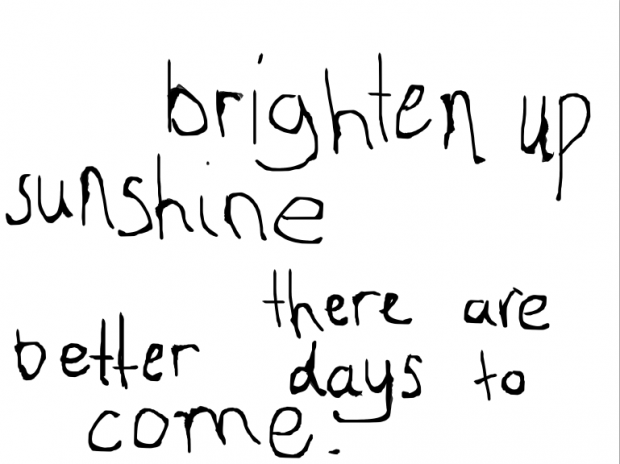 brighten up
sunshine
there are
better days to
come.